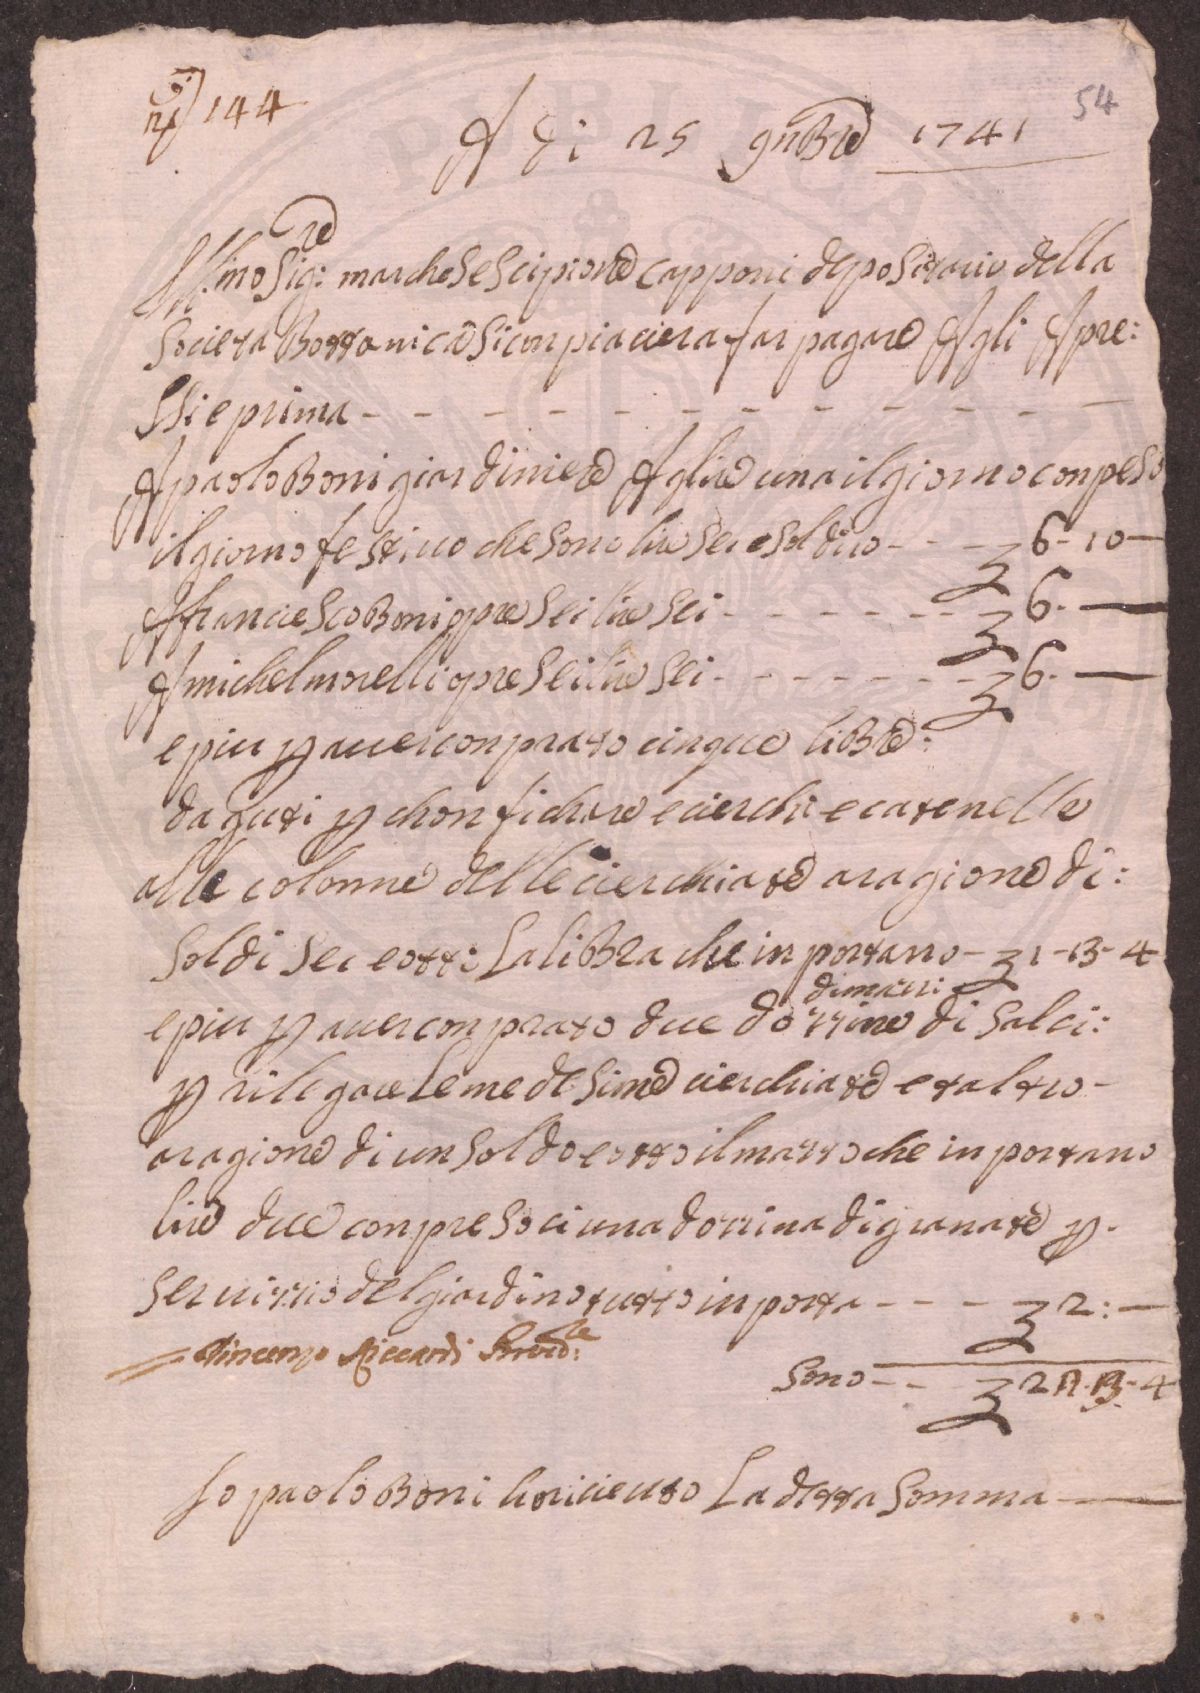 N° 144
54
A di 25 9nbre 1741
Ill:mo Sig:re marchese Scipione Capponi depositario della
Società Bottanica Si conpiacierà far pagare Agli Apre:
SSi e prima - - - - - - - - - - - -
A paolo Boni giardiniere A lire una il giorno conpeso
il giorno festiuo che Sono lire Sei e Soldi 10 - - - £ 6-10-
A francieSco Boni opre Sei lire Sei - - - - - - £ 6.-
A michel morelli opre Sei lire Sei - - - - - - £ 6.-
e piu p auer conprato cinque liBre:
da guti p chonfichare e cierchi e catenelle
alle colonne delle cierchiate a ragione di:
Soldi Sei e otto La liBra che inportano - £ 1-13-4
dimazzi
e piu p auer conprato due dozzine di Salci:
p rilegare Le medeSime cierchiate et altro -
a ragione di un Soldo e otto il mazzo che inportano
lire due conpreSoci una dozzina di granate p.
Seruizzio del giardino tutto inporta - - - £ 2:-
Vincenzo Riccardi Provd:re
Sono - - £ 22.13-4
Io paolo Boni ho riceuto La detta Somma